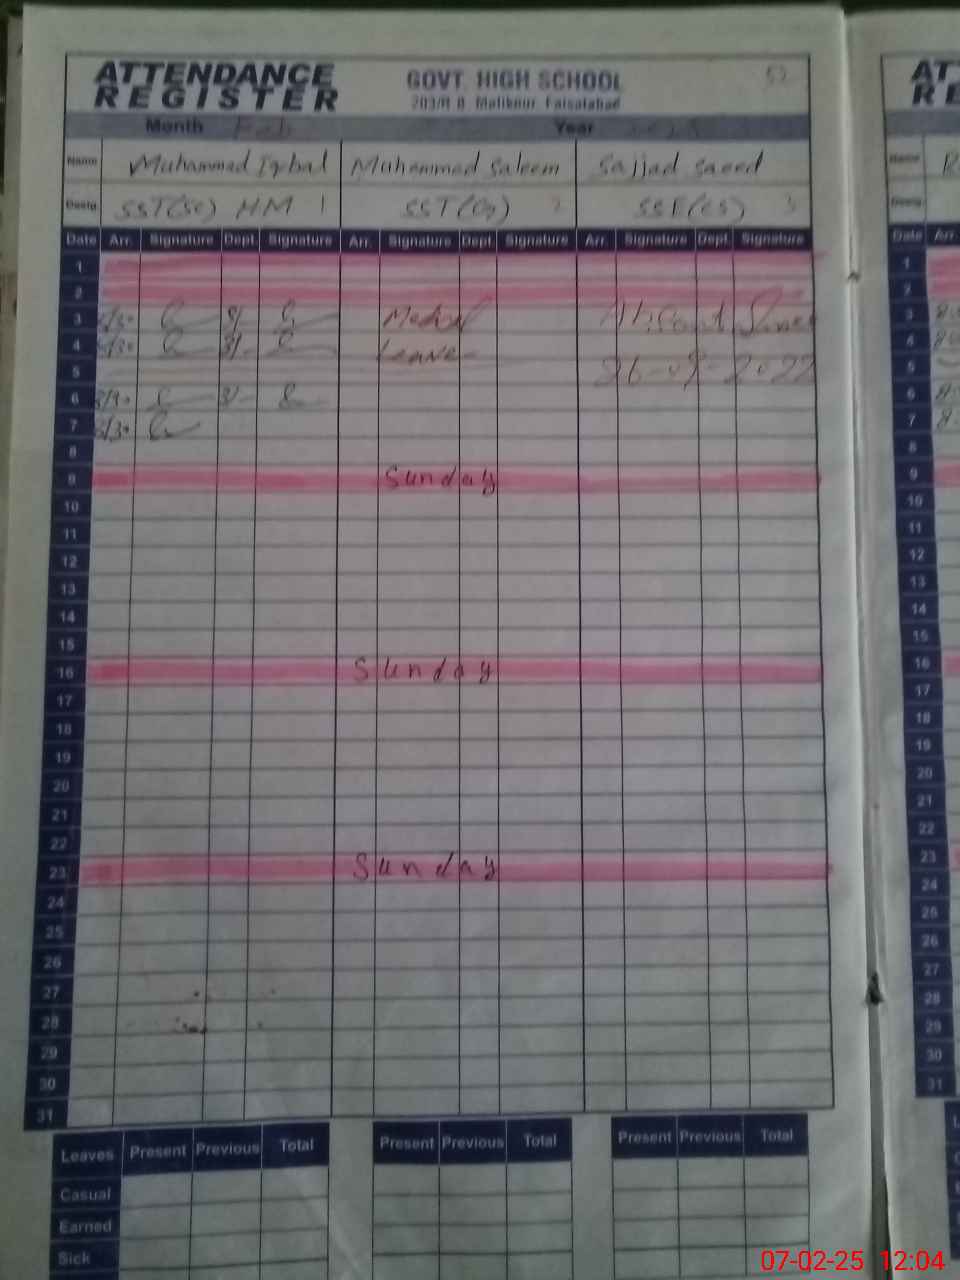 ATTENDANCE REGISTER
GOVT. HIGH SCHOOL
203/R.B. Malikpur Faisalabad
52
Month Feb Year
Name Muhammad Iqbal Muhammad Saleem Sajjad Saeed
Desig. SST(Sc) HM 1 SST( ) 2 SSE(CS) 3
Date Arr. Signature Dept. Signature Arr. Signature Dept. Signature Arr. Signature Dept. Signature Date Arr.
1 1
2 2
3 8/30 Medical Absent Since 3
4 8/30 Leave 4
5 26-09-2022 5
6 8/30 6
7 8/30 7
8 8
9 Sunday 9
10 10
11 11
12 12
13 13
14 14
15 15
16 Sunday 16
17 17
18 18
19 19
20 20
21 21
22 22
23 Sunday 23
24 24
25 25
26 26
27 27
28 28
29 29
30 30
31 31
Leaves Present Previous Total Present Previous Total Present Previous Total
Casual
Earned
Sick
07-02-25 12:04